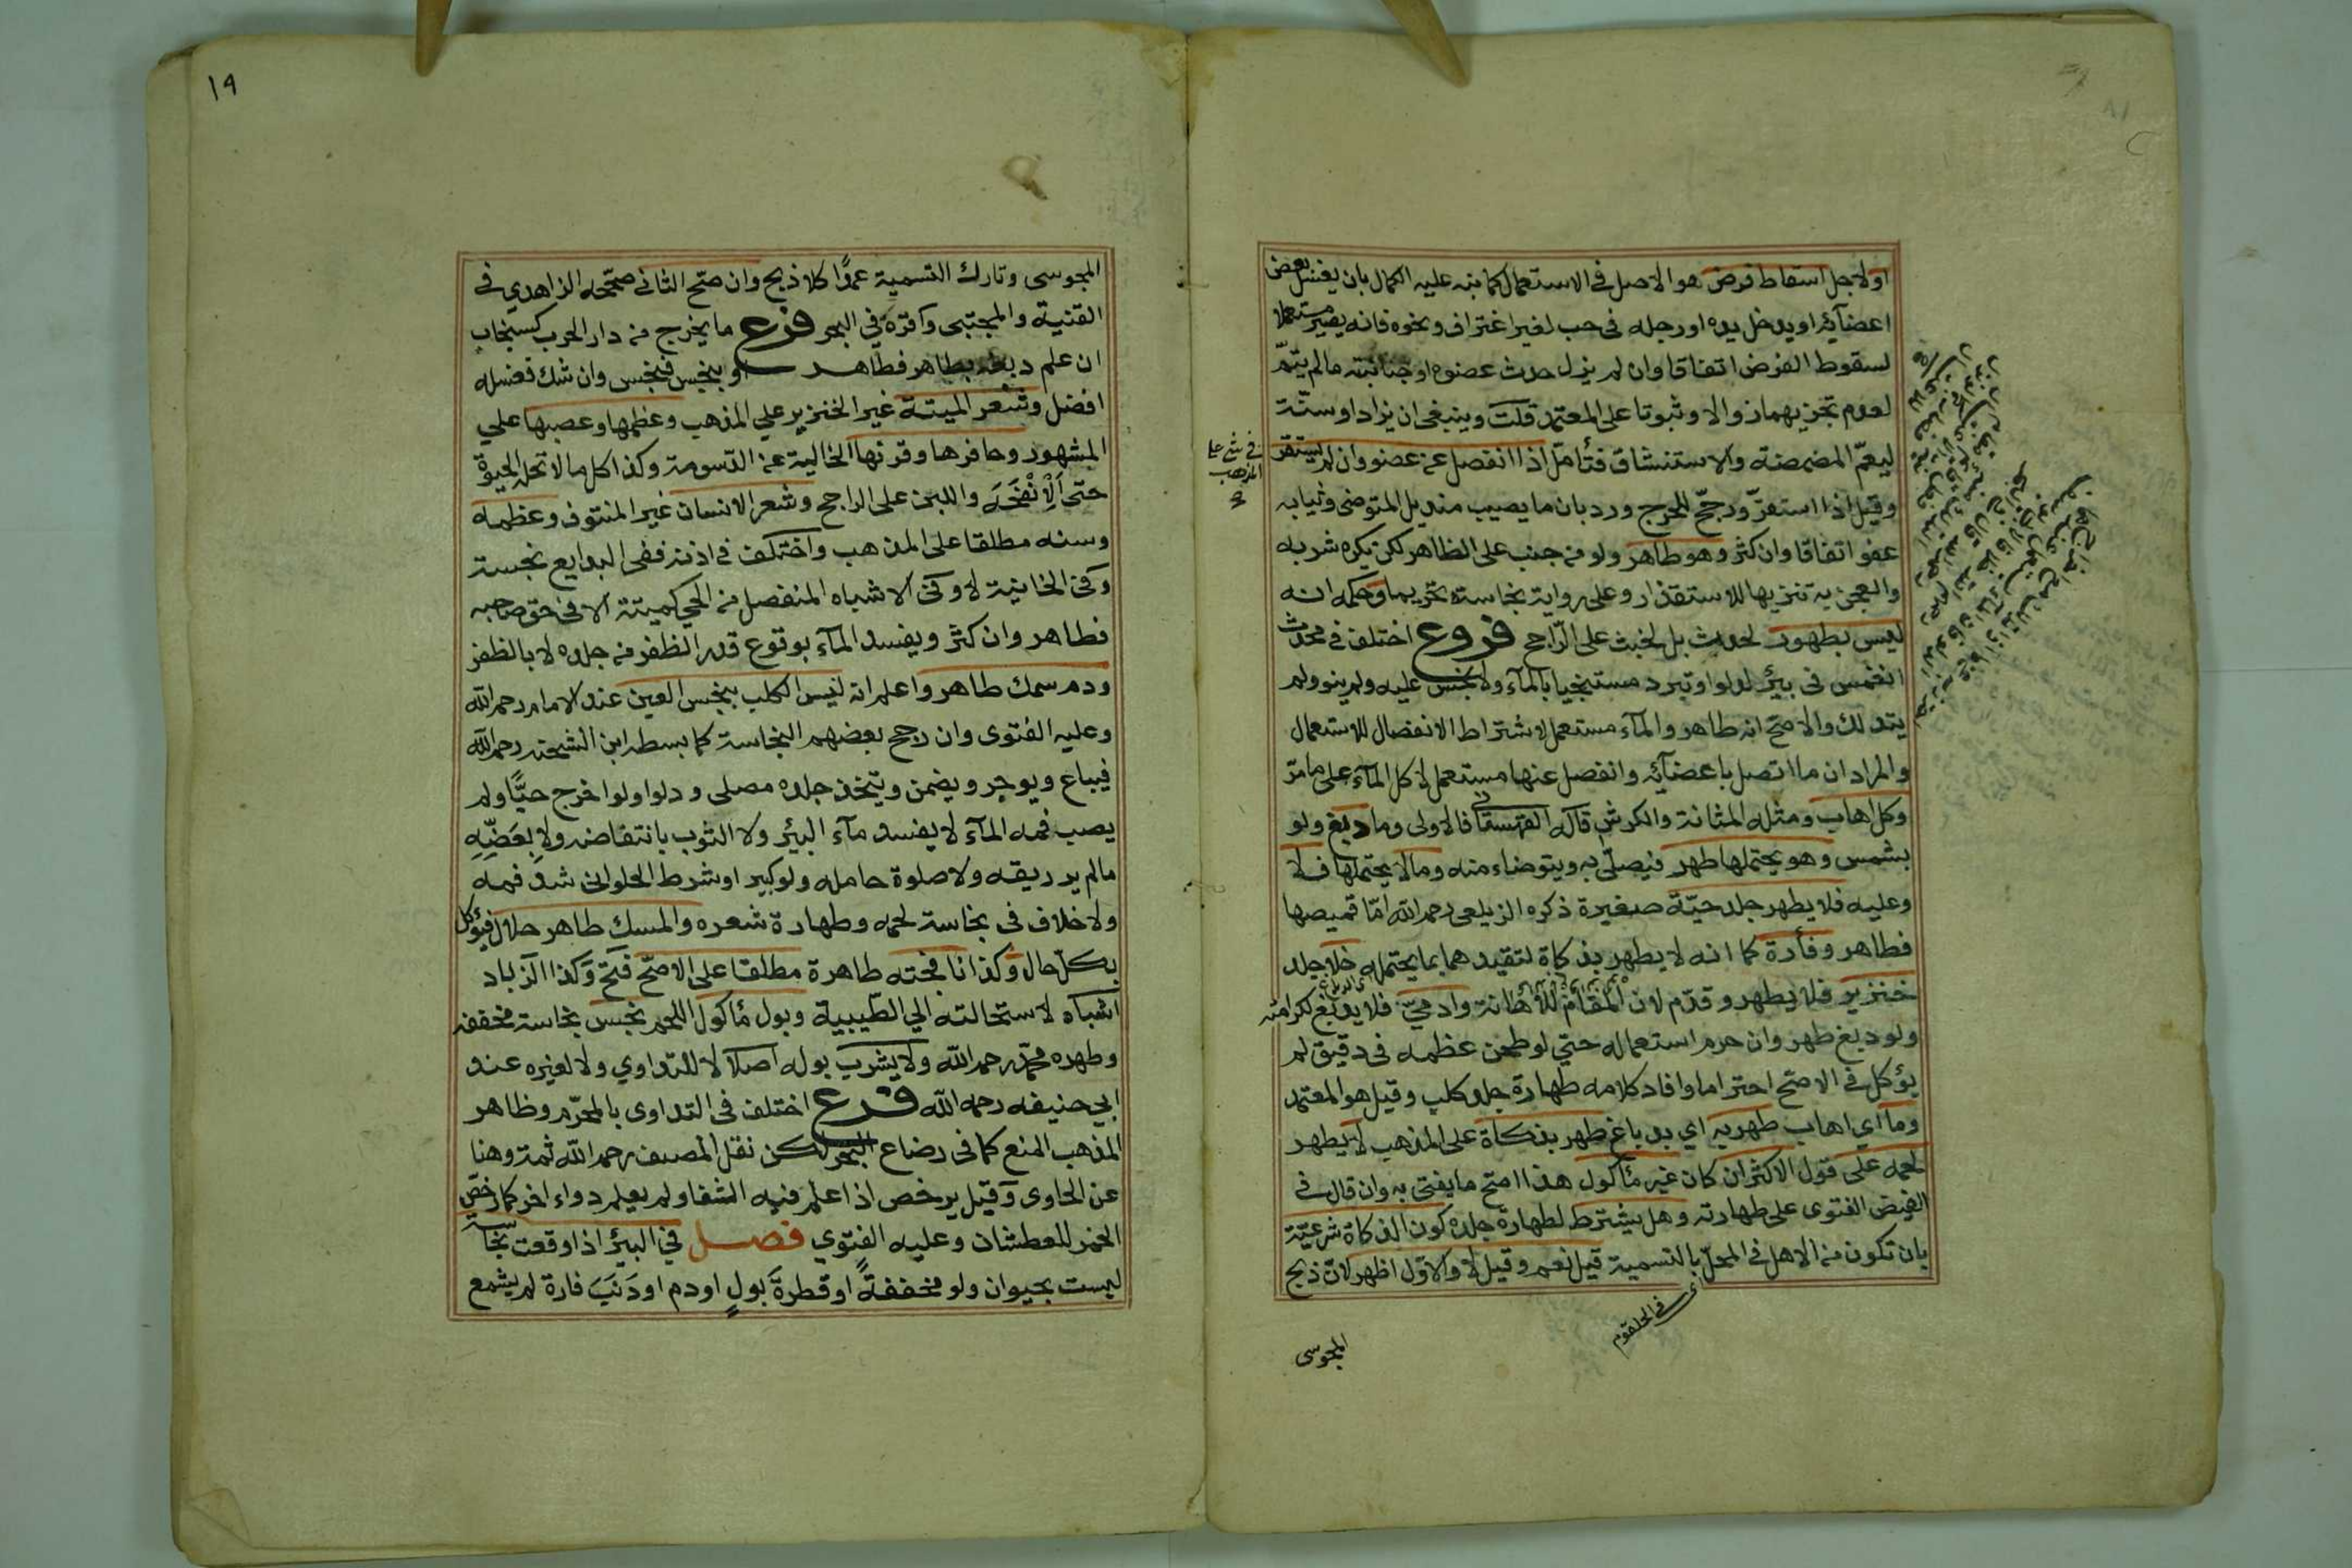 اولاجل اسقاط فرض هو الاصل في الاستعمال كما نبه عليه الكمال بان يغسل بعض
اعضآئه او يدخل يده او رجله فى حب لغير اغتراف ونحوه فانه يصير مستعملا
لسقوط الفرض اتفاقا وان لم يزل حدث عضوه او جنابته مالم يتمّ
لعدم تجزيهما زوالا وثبوتا على المعتمد قلت وينبغى ان يزاد او سنّة
ليعمّ المضمضة والاستنشاق فتأمل اذا انفصل عن عضو وان لم يستقر
في شئ على المذهب
وقيل اذا استقرّ ورجحّ للحرج ورد بان ما يصيب منديل المتوضى وثيابه
عفو اتفاقا وان كثر وهو طاهر ولو من جنب على الظاهر لكن يكره شربه
والعجن به تنزيها للاستقذار وعلى رواية نجاسته تحريما وحكمه انه
ليس بطهور لحدث بل لخبث على الرّاجح فروع اختلف في محدث
انغمس فى بئر لدلو او تبرد مستنجيا بالمآء ولا نجس عليه ولم ينو ولم
يتدلك والاصحّ انه طاهر والمآء مستعمل لاشتراط الانفصال للاستعمال
والمراد ان ما اتصل باعضآئه وانفصل عنها مستعمل لا كل المآء على مامرّ
وكل اهاب ومثله المثانة والكرش قاله القهستانى فالاولى وما دبغ ولو
بشمس وهو يحتملها طهر فيصلّى به ويتوضاء منه ومالا يحتملها فلا
وعليه فلا يطهر جلد حيّة صغيرة ذكره الزيلعى رحمه الله امّا قميصها
فطاهر وفأرة كما انه لا يطهر بذكاة لتقيدهما بما يحتمله خلا جلد
خنزير فلا يطهر وقدّم لان المقام للاهانة وادميّ فلا يدبغ لكرامته
ولو دبغ طهر وان حرم استعماله حتي لو طحن عظمه فى دقيق لم
يؤكل في الاصحّ احتراما وافاد كلامه طهارة جلد كلب وقيل هو المعتمد
وما اي اهاب طهر به اي بدباغ طهر بذكاة على المذهب لا يطهر
لحمه على قول الاكثر ان كان غير مأكول هذا اصحّ ما يفتى به وان قال في
الفيض الفتوى على طهارته وهل يشترط لطهارة جلده كون الذكاة شرعيّة
بان تكون من الاهل في المحلّ بالتسمية قيل نعم وقيل لا والاوّل اظهر لانّ ذبح
اى فى الحلقوم
المجوسى
١٩
المجوسى وتارك التسمية عمدًا كلا ذبح وان صحّ الثانى صحّحه الزاهدي في
القنية والمجتبى واقرّه في البحر فرع ما يخرج من دار الحرب كسنجاب
ان علم دبغه بطاهر فطاهر او بنجس فنجس وان شك فغسله
افضل وشعر الميتة غير الخنزير علي المذهب وعظمها وعصبها علي
المشهور وحافرها وقرنها الخالية عن الدّسومة وكذا كل مالا تحله الحيوة
حتّى الإنفحَة واللبن على الراجح وشعر الانسان غير المنتوف وعظمه
وسنه مطلقا على المذهب واختلف فى اذنه ففى البدايع نجسة
وفى الخانية لا وفى الاشباه المنفصل من الحي كميتته الا فى حق صاحبه
فطاهر وان كثر ويفسد المآء بوقوع قدر الظفر من جلده لا بالظفر
ودم سمك طاهر واعلم انه ليس الكلب بنجس العين عند الامام رحمه الله
وعليه الفتوى وان رجح بعضهم النجاسة كما بسطه ابن الشحنه رحمه الله
فيباع ويوجر ويضمن ويتخذ جلده مصلى ودلوا ولو اخرج حيًّا ولم
يصب فمه المآء لا يفسد مآء البئر ولا الثوب بانتفاضه ولا بعَضّهِ
مالم ير ريقه ولا صلوة حامله ولو كبيرا وشرط الحلوانى شدّ فمه
ولا خلاف فى نجاسة لحمه وطهارة شعره والمسك طاهر حلال فيؤكل
بكلّ حال وكذا نافجته طاهرة مطلقا على الاصحّ فتح وكذا الزباد
اشباه لاستحالته الي الطّيبية وبول مأكول اللحم نجس نجاسة مخففه
وطهره محمّد رحمه الله ولا يشرب بوله اصلا لا للتداوي ولا لغيره عند
ابي حنيفه رحمه الله فرع اختلف فى التداوى بالمحرّم وظاهر
المذهب المنع كما فى رضاع البحر لكن نقل المصنف رحمه الله ثمة وهنا
عن الحاوى وقيل يرخص اذا علم فيه الشفا ولم يعلم دواء اخر كما رخصّ
الخمر للعطشان وعليه الفتوي فصل في البئر اذا وقعت نجاسة
ليست بحيوان ولو مخففةً او قطرة بولٍ او دم او ذنَبَ فارة لم يشمع